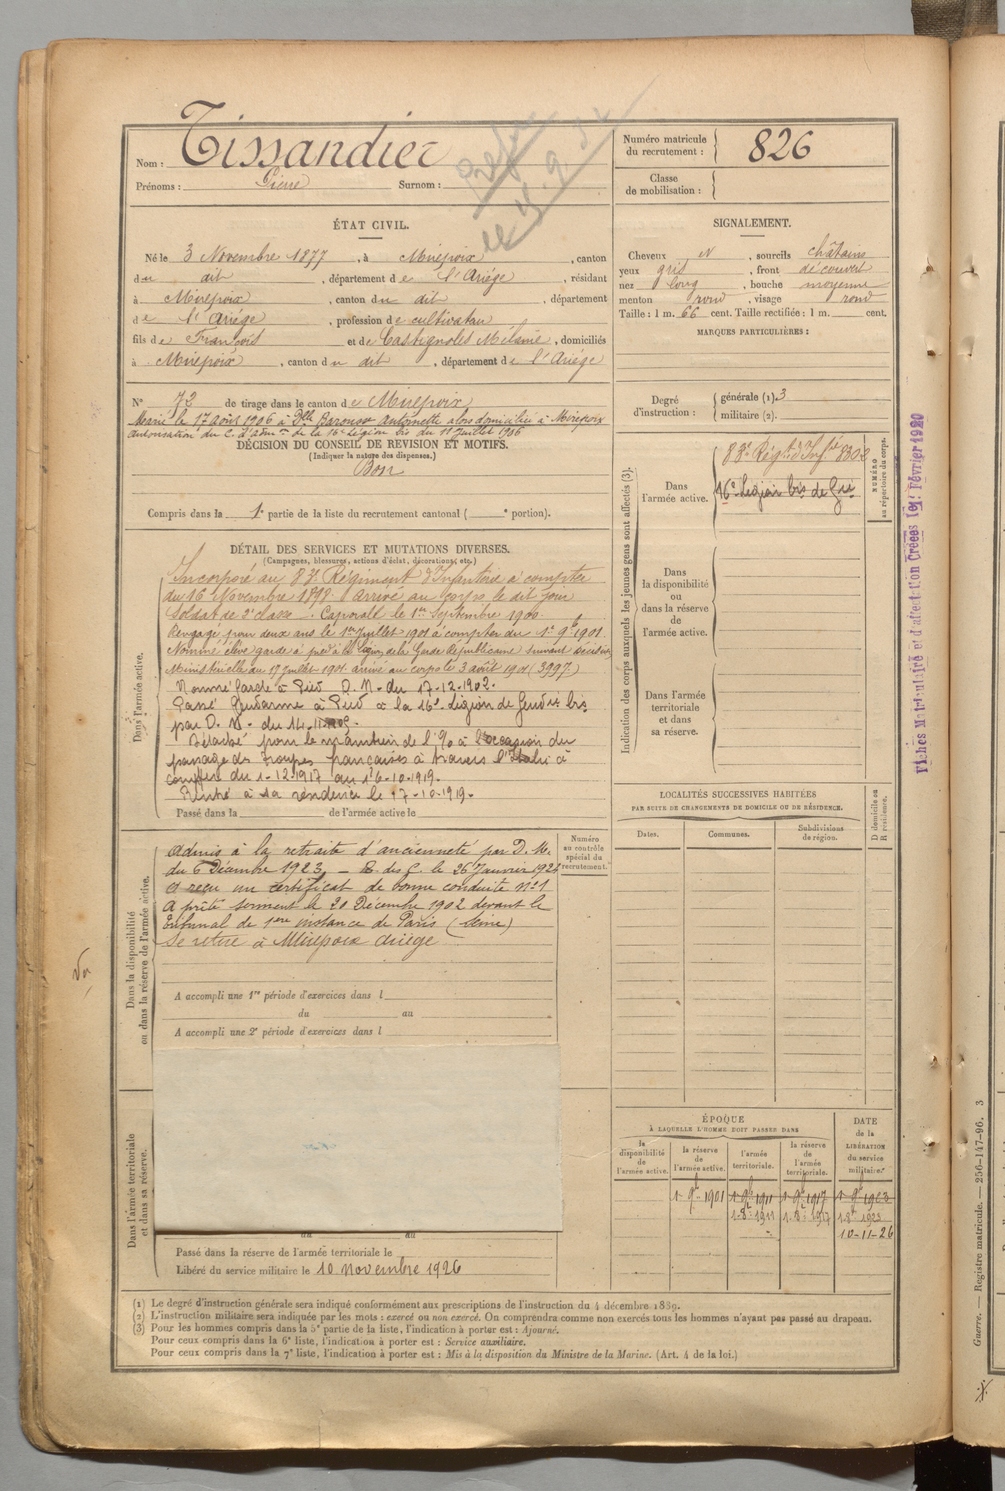 Nom : Tissandier
Prénoms : Pierre Surnom :
Numéro matricule du recrutement : 826
Classe de mobilisation :
ÉTAT CIVIL.
Né le 3 Novembre 1877, à Mirepoix, canton
du dit, département de l'Ariége, résidant
à Mirepoix, canton du dit, département
de l'Ariége, profession de cultivateur
fils de François et de Castignolés Mélanie, domiciliés
à Mirepoix, canton du dit, département de l'Ariége
SIGNALEMENT.
Cheveux et, sourcils châtains
yeux gris, front découvert
nez long, bouche moyenne
menton rond, visage rond
Taille : 1 m. 66 cent. Taille rectifiée : 1 m. cent.
MARQUES PARTICULIÈRES :
N° 72 de tirage dans le canton de Mirepoix
Marié le 17 août 1906 à Dlle Barousse Antoinette alors domiciliée à Mirepoix
autorisation du C. d'adm on de la 16e Légion bis du 11 Juillet 1906
DÉCISION DU CONSEIL DE REVISION ET MOTIFS.
(Indiquer la nature des dispenses.)
Bon
Compris dans la 1e partie de la liste du recrutement cantonal ( e portion).
Degré d'instruction : générale (1). 3
militaire (2).
Indication des corps auxquels les jeunes gens sont affectés (3).
Dans l'armée active.
83e Régt d'Infie 8302
16e Légion bis de Gie
NUMÉRO au répertoire du corps.
Dans la disponibilité ou dans la réserve de l'armée active.
Dans l'armée territoriale et dans sa réserve.
DÉTAIL DES SERVICES ET MUTATIONS DIVERSES.
(Campagnes, blessures, actions d'éclat, décorations, etc.)
Dans l'armée active.
Incorporé au 83e Régiment d'Infanterie à compter
du 16 Novembre 1898. Arrivé au Corps le dit jour
Soldat de 2e classe. Caporal le 1er Septembre 1900.
Rengagé pour deux ans le 1er Juillet 1901 à compter du 1er 9b 1901.
Nommé élève garde à pied à la légion de la Garde Républicaine suivant décision
Ministérielle du 17 Juillet 1901. arrivé au corps le 3 août 1901 (3997)
Nommé Garde à Pied D. M. du 17-12-1902.
Passé Gendarme à Pied à la 16e Légion de Gendie bis
par D. M. du 14.
Détaché pour le maintien de l'% à l'occasion du
passage des troupes françaises à travers l'Italie à
compter du 1-12-1917 au 16-10-1919.
Rentré à sa résidence le 17-10-1919.
Passé dans la de l'armée active le
Dans la disponibilité ou dans la réserve de l'armée active.
Numéro au contrôle spécial du recrutement.
Admis à la retraite d'ancienneté par D. M.
du 6 Décembre 1923 — R. des C. le 26 Janvier 1924
a reçu un certificat de bonne conduite n°1
A prêté serment le 20 Décembre 1902 devant le
tribunal de 1ere instance de Paris (Seine)
Se retire à Mirepoix Ariège
A accompli une 1re période d'exercices dans l
du au
A accompli une 2e période d'exercices dans l
LOCALITÉS SUCCESSIVES HABITÉES
PAR SUITE DE CHANGEMENTS DE DOMICILE OU DE RÉSIDENCE.
Dates. Communes. Subdivisions de région. D domicile ou R résidence.
ÉPOQUE
À LAQUELLE L'HOMME DOIT PASSER DANS
la disponibilité de l'armée active. la réserve de l'armée active. l'armée territoriale. la réserve de l'armée territoriale. DATE de la LIBÉRATION du service militaire.
1er 9b 1901 1er 9b 1911 1er 9b 1917 1er 9b 1923
1-8e 1911 1-8e 1917 1-8e 1923
10-11-26
Dans l'armée territoriale et dans sa réserve.
du au
Passé dans la réserve de l'armée territoriale le
Libéré du service militaire le 10 Novembre 1926
(1) Le degré d'instruction générale sera indiqué conformément aux prescriptions de l'instruction du 4 décembre 1889.
(2) L'instruction militaire sera indiquée par les mots : exercé ou non exercé. On comprendra comme non exercés tous les hommes n'ayant pas passé au drapeau.
(3) Pour les hommes compris dans la 5e partie de la liste, l'indication à porter est : Ajourné.
Pour ceux compris dans la 6e liste, l'indication à porter est : Service auxiliaire.
Pour ceux compris dans la 7e liste, l'indication à porter est : Mis à la disposition du Ministre de la Marine. (Art. 4 de la loi.)
Fiches Matriculaire et d'affectation Créées le 1er Février 1920
Guerre. — Registre matricule. — 256-147-96. 3